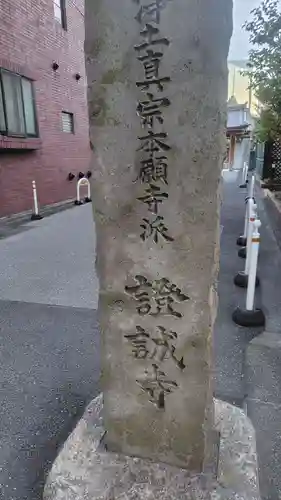 浄土真宗本願寺派
證誠寺